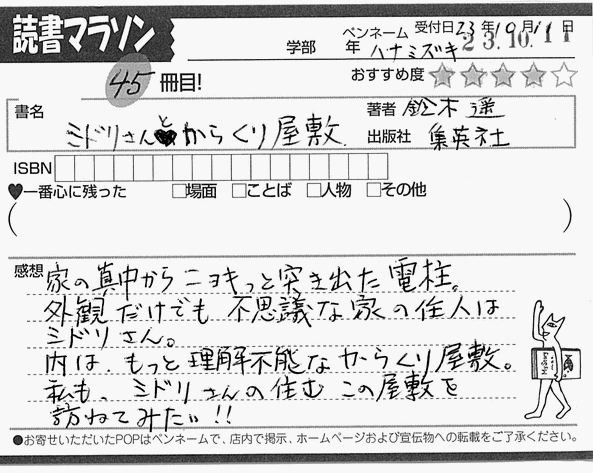 読書マラソン
学部 年
ペンネーム ハナミズキ
受付日 23年10月11日
23.10.11
45冊目!
おすすめ度 ★★★★☆
書名 ミドリさんとからくり屋敷
著者 鈴木遥
出版社 集英社
ISBN
♥一番心に残った □場面 □ことば □人物 □その他
( )
感想
家の真中からニョキっと突き出た電柱。
外観だけでも不思議な家の住人は
ミドリさん。
内は、もっと理解不能なからくり屋敷。
私も、ミドリさんの住むこの屋敷を
訪ねてみたい!!
●お寄せいただいたPOPはペンネームで、店内で掲示、ホームページおよび宣伝物への転載をご了承ください。